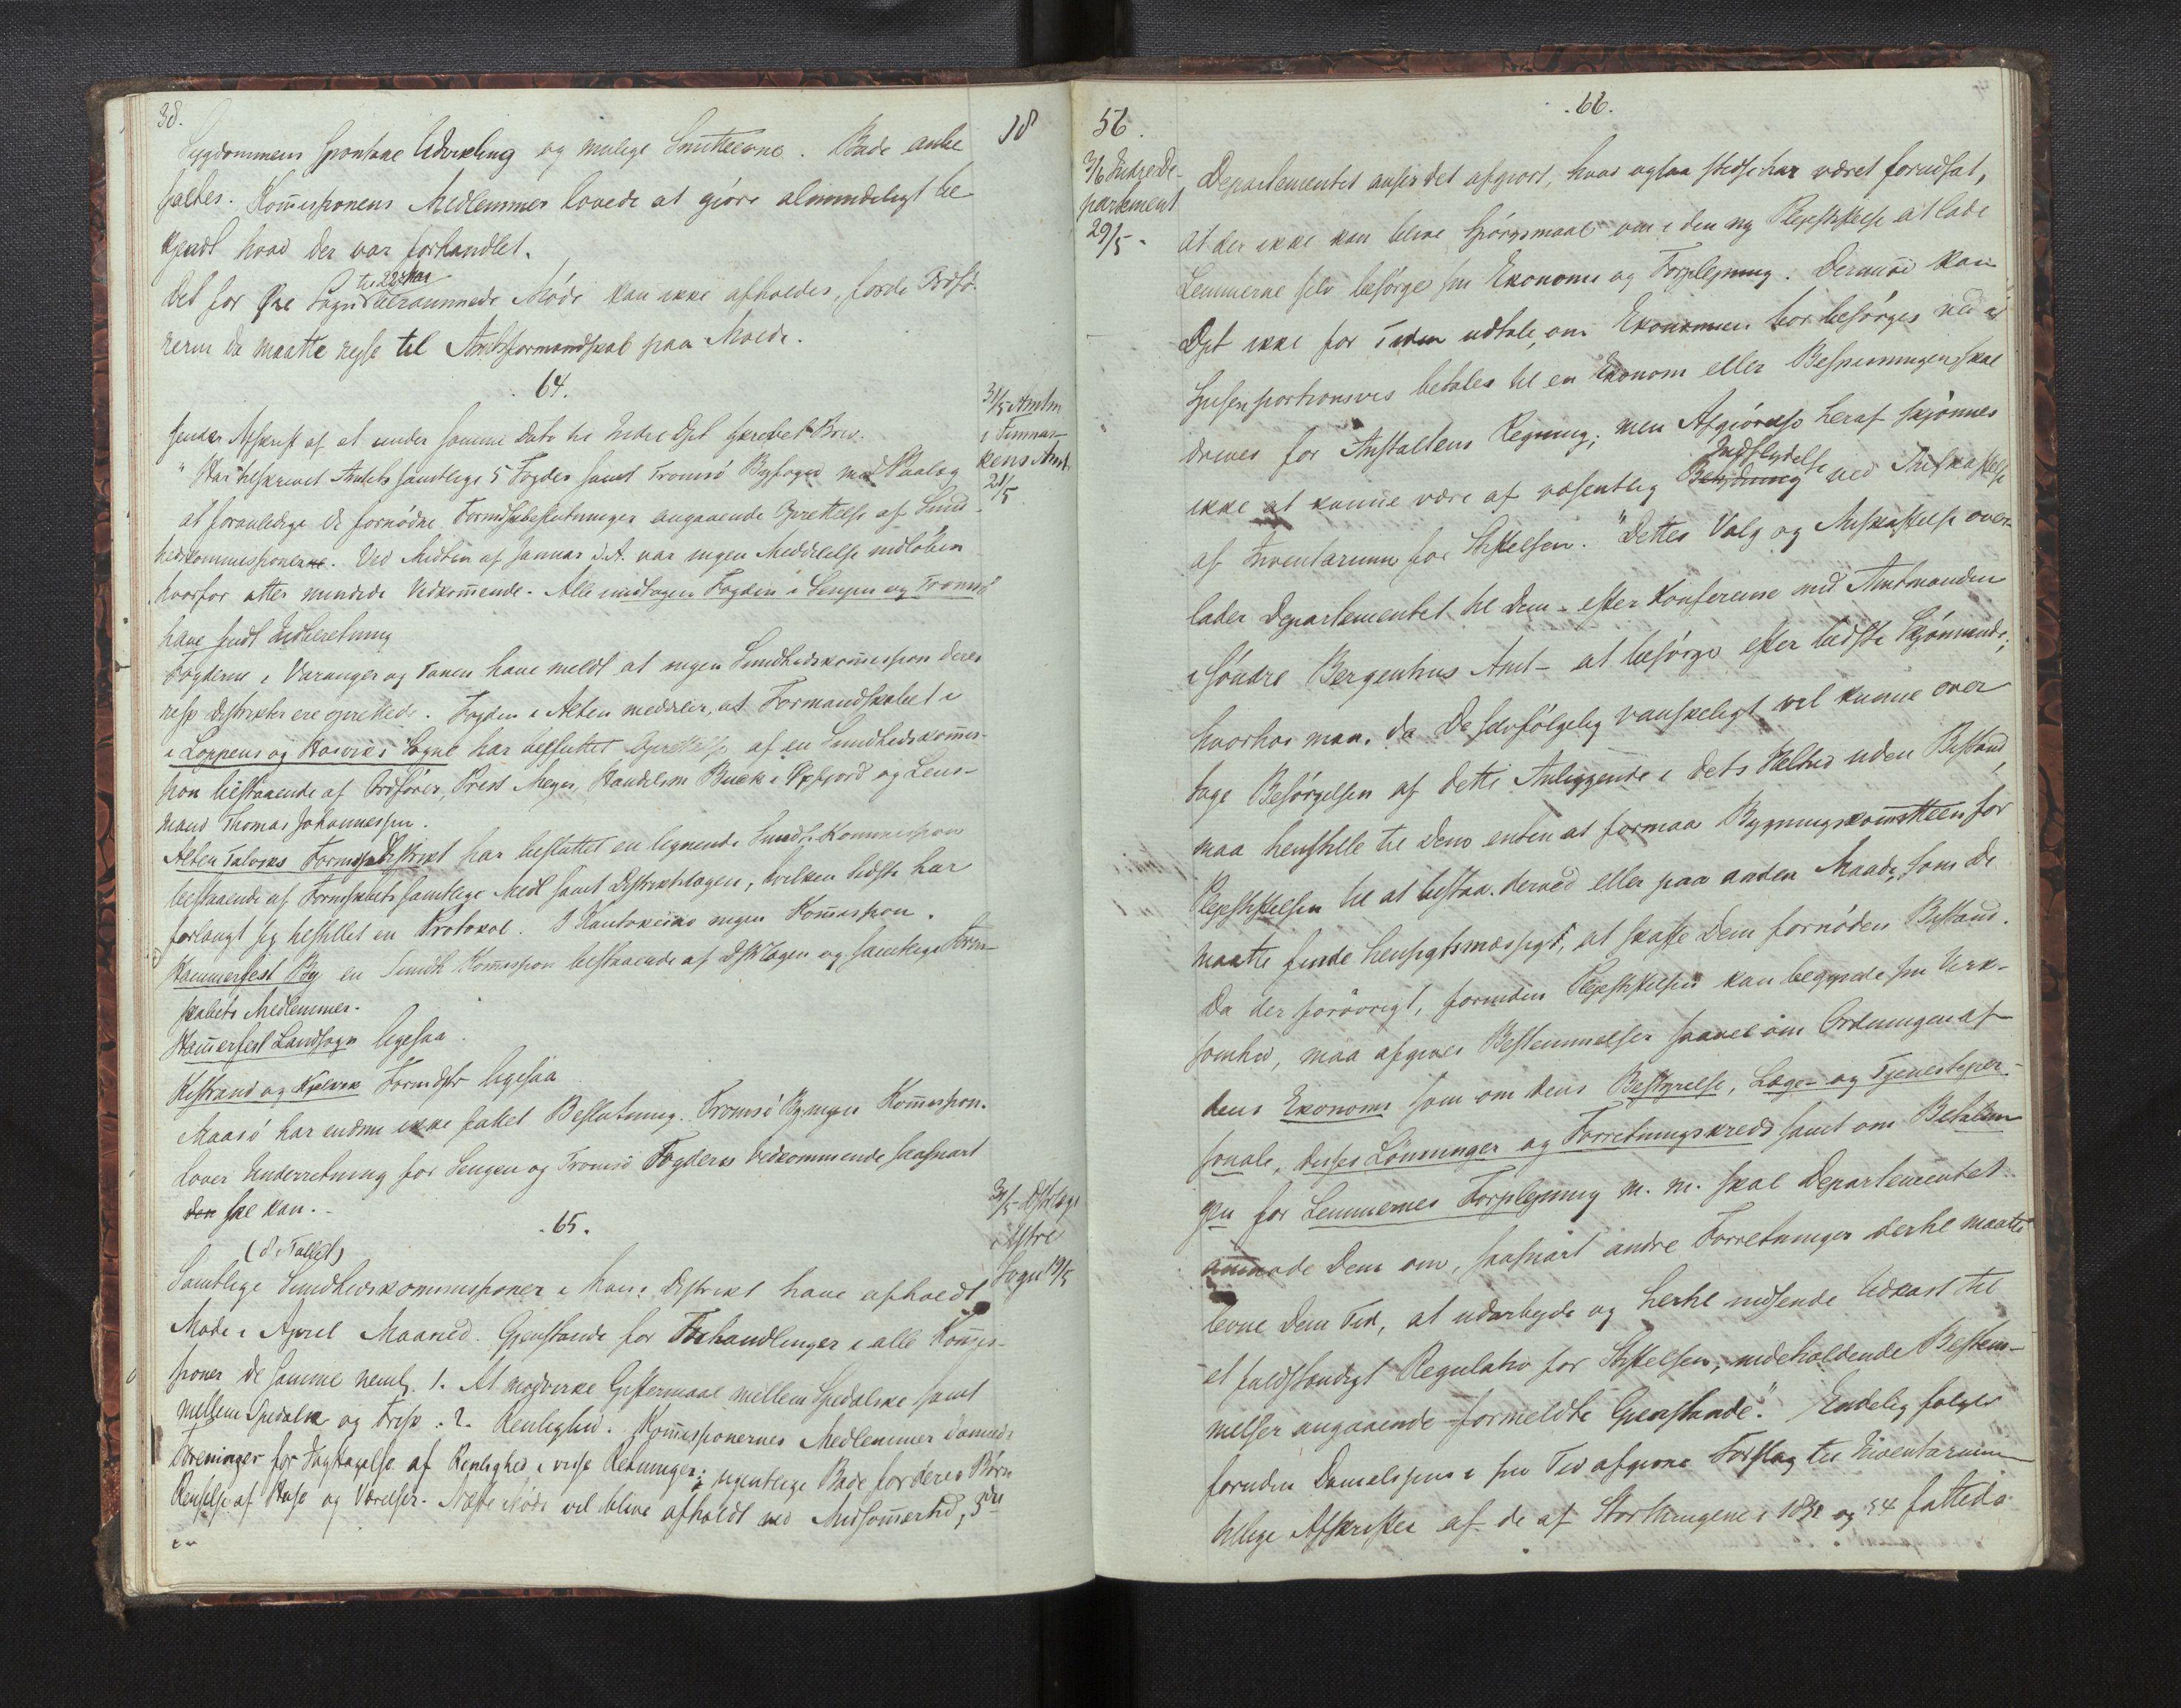 38.
18
Sygdommens spontane Udvikling og mulige Smitteevne. Bade anbe
faltes. Kommissionens Medlemmer lovede at giöre almindeligt be
kjendt hvad der var forhandlet.
til 22de Mai
Det for Öre Sogn berammede Möde kan ikke afholdes, fordi Ordfö-
reren da maatte rejse til Amtsformandskab paa Molde.
64.
31/5 Amtm
i Finmar-
kens Amt
21/5
sender Afskrift af et under samme Dato til Indre Dpt skrevet Brev.
"Har tilskrevet Amtets samtlige 5 Fogder samt Tromsö Byfoged med Paalæg
at foranledige de fornödne Formskbeslutninger angaaende Oprettelse af Sund-
hedskommissionerne. Ved Midten af Januar d.A. var ingen Meddelelse indlöben
hvorfor atter mindede Vedkommende. Alle undtagen Fogden i Senjen og Tromsö
have sendt Indberetning
Fogderne i Varanger og Tanen have meldt at ingen Sundhedskommission i deres
resp Distrikter ere oprettede. Fogden i Alten meddeler, at Formandskabet i
i Loppens og Hasviks Sogne har besluttet Oprettelse af en Sundhedskommis-
sion bestaaende af Ordförer, Præst Meyer, Handelsm Buck i Öxfjord og Lens-
mand Thomas Johannessen.
Alten Talviks FormskDistrikt har besluttet en lignende Sundh. Kommission
bestaaende af Formskabets samtlige Medl samt Distriktslægen, hvilken sidste har
forlangt sig tilstillet en Protokol. I Kautokeino ingen Kommission.
Hammerfest By en Sundh Kommission bestaaende af Dstrlægen og samtlige Form-
skabets Medlemmer.
Hammerfest Landsogn ligesaa.
Kistrand og Kjelvik Formdstr ligesaa
Maasö har endnu ikke fattet Beslutning. Tromsö By ingen Kommission.
Lover Underretning for Senjen og Tromsö Fogderis Vedkommende saasnart
den ske kan.
65.
31/5 Dstrlæge
i Ytre
Sogn 19/5
(8 i Tallet)
Samtlige Sundhedskommissioner i hans Distrikt have afholdt
Möde i April Maaned. Gjenstande for Forhandlinger i alle Kommis-
sioner de samme neml. 1. At modvirke Giftermaal mellem Spedalske samt
mellem Spedalsk og Frisk. 2. Renlighed. Kommissionernes Medlemmer dannede
Foreninger for Iagttagelse af Renlighed i visse Retninger: ugentlige Bade for deres Börn
Renselse af Huse og Værelser. Næste Möde vil blive afholdt ved Midsommertid, 3die
56.
66.
3/6 Indre De-
partement
29/5.
Departementet anser det afgiort, hvad ogsaa stedse har været forudsat,
at der ikke kan blive Spörgsmaal om i den ny Plejestiftelse at lade
Lemmerne selv besörge sin Ekonomi og Forplejning. Derimod kan
Dpt ikke for Tiden udtale, om Ekonomien bör besörges ved at
Spisen portionsvis betales til en Ekonom eller Bespisningen skal
drives for Anstaltens Regning; men Afgiörelse heraf skjönnes
Indflydelse
ikke at kunne være af væsentlig Betydning ved Anskaffelse
af Inventarium for Stiftelsen." Dettes Valg og Anskaffelse over-
lader Departementet til Dem - efter Konference med Amtmanden
i Söndre Bergenhus Amt - at besörge efter bedste Skjönnende;
hvorhos man, da De selvfölgelig vanskeligt vil kunne over
tage Besörgelsen af dette Anliggende i dets Helhed uden Bistand,
maa henstille til Dem enten at formaa Bygningskommitteen for
Plejestiftelsen til at bistaa derved eller paa anden Maade, som De
maatte finde hensigtsmæssigt, at skaffe Dem fornöden Bistand.
Da der forövrigt, forinden Plejestiftelsen kan begynde sin Virk-
somhed, maa afgives Bestemmelser saavel om Ordningen af
dens Ekonomi som om dens Bestyrelse, Læge- og Tjenesteper-
sonale, disses Lönninger og Forretningskreds samt om Betalin
gen for Lemmernes Forplejning m. m. skal Departementet
anmode Dem om, saasnart andre Forretninger dertil maatte
levne Dem Tid, at udarbejde og hertil indsende Udkast til
et fuldstændigt Regulativ for Stiftelsen, indeholdende Bestem-
melser angaaende formeldte Gjenstande". Endelig fölger
foruden Danielsens i sin Tid afgivne Forslag til Inventarium
tillige Afskrifter af de af Storthingene i 1851 og 54 fattede